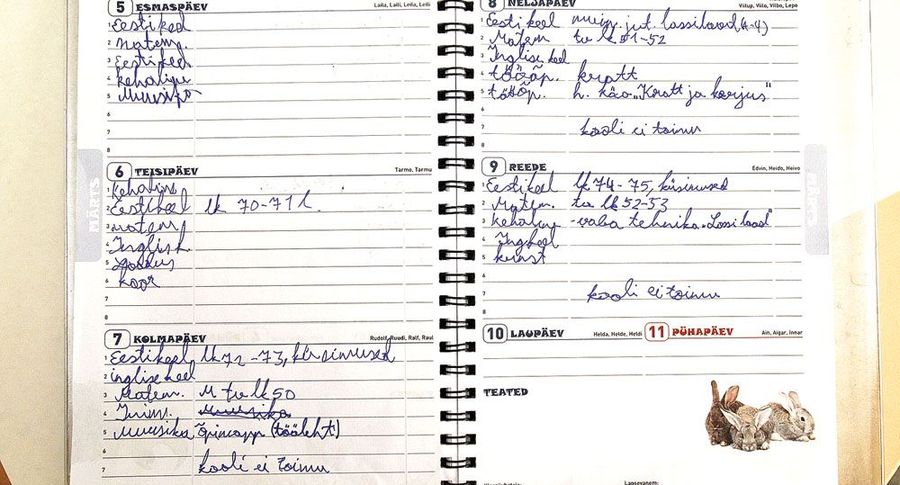 5 ESMASPÄEV
Laila, Laili, Leila, Leili
1 Eesti keel
2 Matem.
3 Eesti keel
4 kehaline
5 Muusika
7
8
6 TEISIPÄEV
Tarmo, Tarmu
MÄRTS
1 Kehaline
2 Eesti keel lk 70-71
3 Matem.
4 Inglise
5 Loodus
6 koor
7
8
7 KOLMAPÄEV
Rudolf, Ruudi, Ralf, Raul
1 Eesti keel lk 72-73, küsimused
2 inglise keel
3 Matem. M tv lk 50
4 Inim. Muusika
5 Muusika Õpincapp (tööleht)
7 kooli ei toimu
8 NELJAPÄEV
Vilup, Vilo, Vilbo, Lepo
1 Eesti keel muinj. jut. lossilood
2 Matem tv lk 51-52
3 Inglise keel
4 tööõp. kratt
5 tööõp. h. käo „Kratt ja korjus"
7 kooli ei toimu
8
9 REEDE
Edvin, Heido, Heivo
1 Eesti keel lk 74-75, küsimused
2 Matem. tv lk 52-53
3 kehaline vaba tehnika „Lossilood"
4 Ing keel
5 kunst
6
7 kooli ei toimu
8
10 LAUPÄEV
Helda, Helde, Heldi
11 PÜHAPÄEV
Ain, Aigar, Innar
TEATED
Lapsevanem: